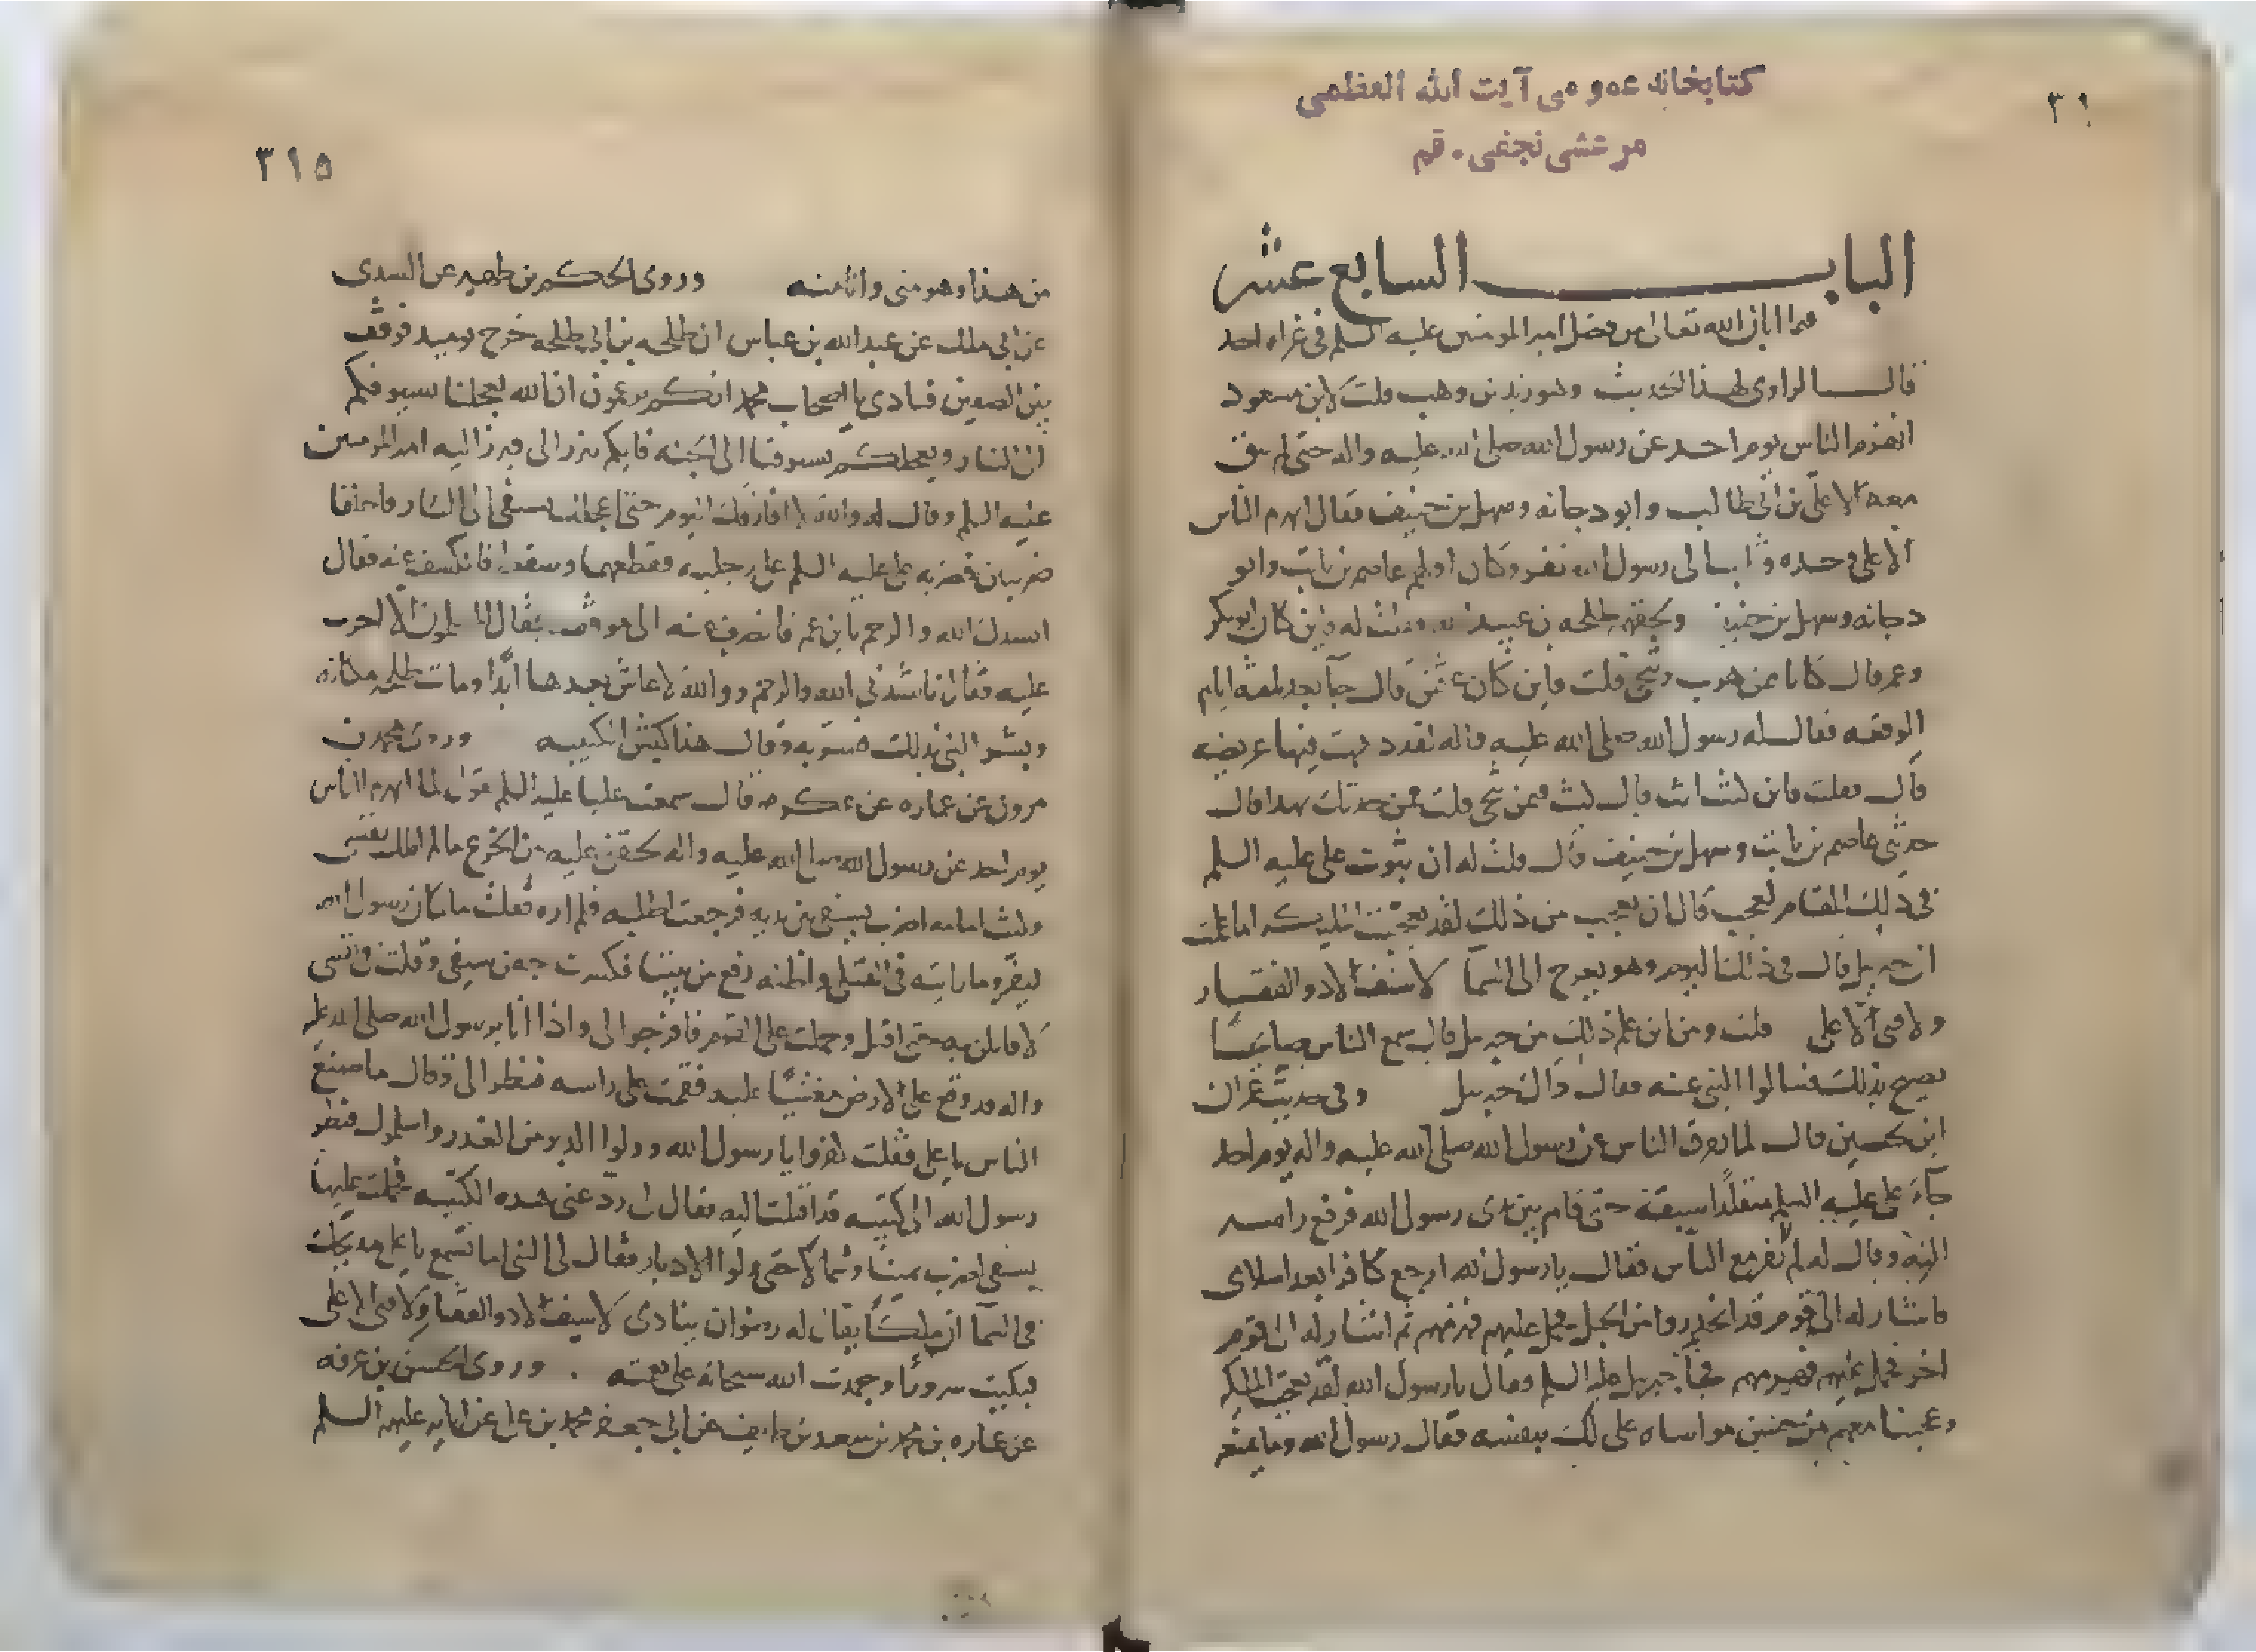 كتابخانه عمومى آيت الله العظمى
مرعشى نجفى - قم
٣١
الباب السابع عشر
مما ابان الله تعالى من فضل امير المومنين عليه السلم فى غزاه احد
قال الراوى لهذا الحديث وهو زيد بن وهب قلت لابن مسعود
انهزم الناس يوم احد عن رسول الله صلى الله عليه واله حتى لم يبق
معه الا على بن ابى طالب وابو دجانه وسهل بن حنيف فقال انهزم الناس
الا على وحده وثاب الى رسول الله نفر وكان اولهم عاصم بن ثابت وابو
دجانه وسهل بن حنيف ولحقهم طلحه بن عبيد الله فقلت له فاين كان ابو بكر
وعمر قال كانا ممن هرب قلت فاين كان عثمن قال جآ بعد ثلثه ايام
الوقعه فقال له رسول الله صلى الله عليه واله لقد ذهبت فيها عريضه
قال فقلت فاين كنت انت قال كنت فيمن تنحى قلت فمن حدثك بهذا قال
حدثنى عاصم بن ثابت وسهل بن حنيف قال قلت له ان ثبوت على عليه السلم
فى ذلك المقام لعجب قال ان تعجب من ذلك لقد تعجبت الملىكه اما علمت
ان جبريل قال فى ذلك اليوم وهو يعرج الى السمآ لا سيف الا ذو الفقار
ولا فتى الا على قلت ومن اين علم ذلك من جبريل قال سمع الناس صايحًا
يصيح بذلك فسالوا النبى عنه فقال ذاك جبريل وفى حديث عمران
ابن حصين قال لما تفرق الناس عن رسول الله صلى الله عليه واله يوم احد
جآء على عليه السلم متقلدًا سيفه حتى قام بين يدى رسول الله فرفع راسه
اليه وقال له لم لا تفر مع الناس فقال يا رسول الله ارجع كافرا بعد اسلامى
فاشار له الى قوم قد انحدروا من الجبل فحمل عليهم فهزمهم ثم اشار له الى قوم
اخر فحمل عليهم فهزمهم فجآ جبريل عليه السلم وقال يا رسول الله لقد تعجبت الملىكه
وعجبنا معهم من حسن مواساه على لك بنفسه فقال رسول الله وما يمنعه
٣١٥
من هذا وهو منى وانا منه وروى الحكم بن ظهير عن السدى
عن ابى ملك عن عبد الله بن عباس ان طلحه بن ابى طلحه خرج يوميد فوقف
بين الصفين فنادى يا اصحاب محمد انكم تزعمون ان الله يعجلنا بسيوفكم
الى النار ويعجلكم بسيوفنا الى الجنه فايكم يبرز الى فبرز اليه امير المومنين
عليه السلم وقال له والله لا افارقك اليوم حتى اعجلك بسيفى الى النار فاختلفا
ضربتين فضربه على عليه السلم على رجليه فقطعهما وسقط فانكشف عنه فقال
انشدك الله والرحم يا ابن عم فانصرف عنه الى موقفه فقال المسلمون الا اجهزت
عليه فقال ناشدنى الله والرحم ووالله لا عاش بعدها ابدًا ومات طلحه مكانه
وبشر النبى بذلك فسر به وقال هذا كبش الكتيبه وروى محمد بن
مرون عن عماره عن عكرمه قال سمعت عليا عليه السلم يقول لما انهزم الناس
يوم احد عن رسول الله صلى الله عليه واله لحقنى عليه من الجزع ما لم املك نفسى
وكنت امامه اضرب بسيفى بين يديه فرجعت اطلبه فلم اره فقلت ما كان رسول الله
ليفر وما رايته فى القتلى واظنه رفع من بيننا فكسرت جفن سيفى وقلت فى نفسى
لاقاتلن به حتى اقتل وحملت على القوم فافرجوا لى واذا انا برسول الله صلى الله عليه
واله قد وقع على الارض مغشيًا عليه فقمت على راسه فنظر الى وقال ما صنع
الناس يا على فقلت كفروا يا رسول الله وولوا الدبر من العدو واسلموك فنظر
رسول الله الى كتيبه قد اقبلت اليه فقال لى رد عنى هذه الكتيبه فحملت عليها
بسيفى اضرب يمينًا وشمالا حتى ولوا الادبار فقال لى النبى اما تسمع يا على مديحك
فى السمآ ان ملكًا يقال له رضوان ينادى لا سيف الا ذو الفقار ولا فتى الا على
فبكيت سرورًا وحمدت الله سبحانه على نعمته . وروى الحسن بن عرفه
عن عماره بن محمد بن سعد بن طريف عن ابى جعفر محمد بن على عن ابايه عليهم السلم